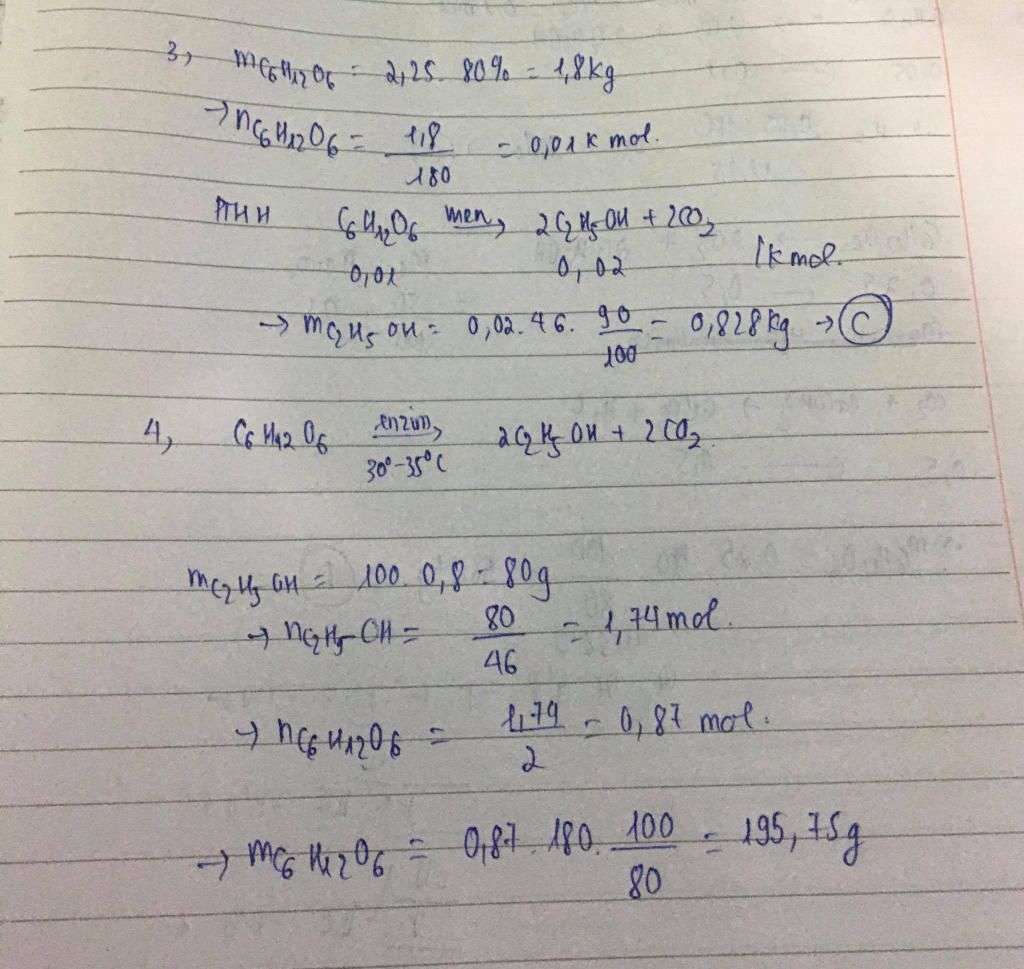 3, mC6H12O6 = 2,25. 80% = 1,8kg
→ nC6H12O6 = 1,8/180 = 0,01 k mol.
PTHH C6H12O6 men→ 2C2H5OH + 2CO2
0,01 0,02 /k mol.
→ mC2H5OH = 0,02.46. 90/100 = 0,828kg → C
4, C6H12O6 enzim→ 30°-35°C 2C2H5OH + 2CO2.
mC2H5OH = 100. 0,8 = 80g
→ nC2H5-OH = 80/46 = 1,74mol.
→ nC6H12O6 = 1,74/2 = 0,87 mol.
→ mC6H12O6 = 0,87. 180. 100/80 = 195,75g